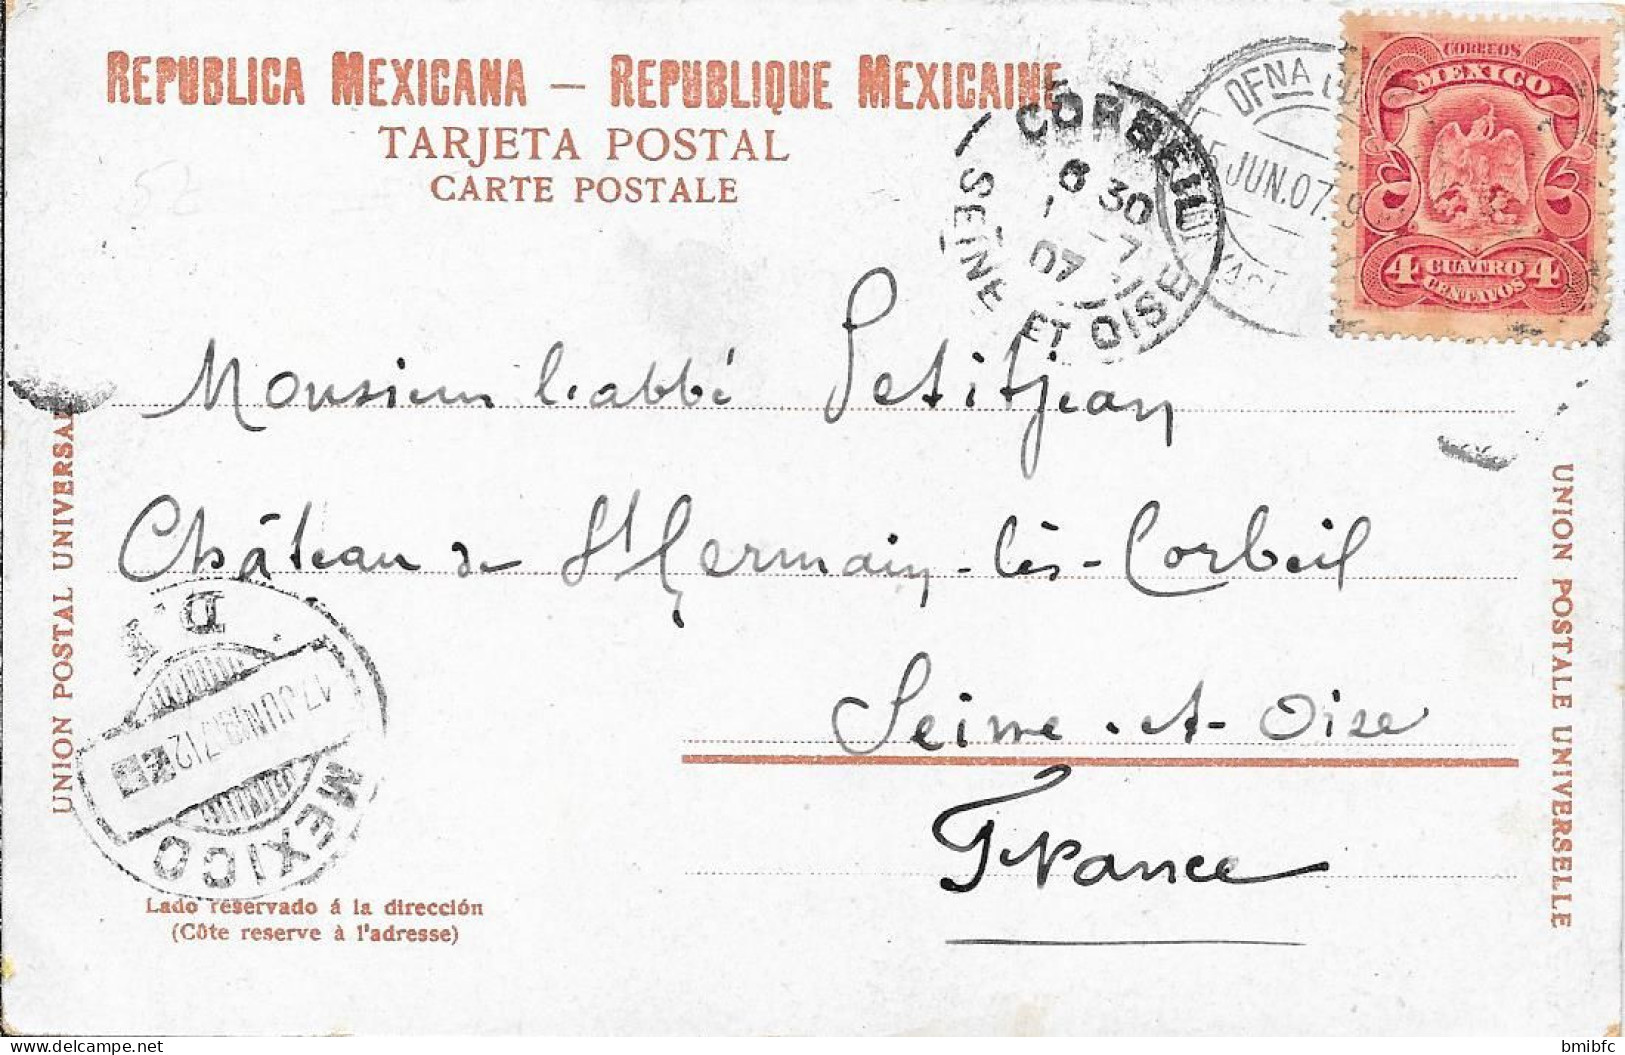 REPUBLICA MEXICANA — REPUBLIQUE MEXICAINE
TARJETA POSTAL
CARTE POSTALE
CORBEIL
6 30
1 -7
07
SEINE ET OISE
OFNA
JUN.07.
CORREOS
MEXICO
4 CUATRO 4
CENTAVOS
52
Monsieur l'abbé Petitjean
Château de St Germain-lès-Corbeil
Seine-et-Oise
France
UNION POSTAL UNIVERSAL
UNION POSTALE UNIVERSELLE
D.
17 JUN
MEXICO
Lado reservado á la dirección
(Côte reserve à l'adresse)
bmibfc